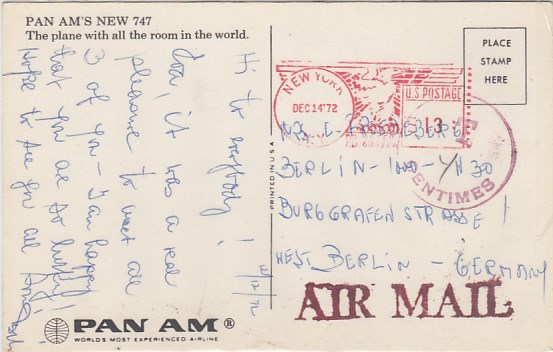 PAN AM'S NEW 747
The plane with all the room in the world.
Hi to everybody!
it was a real
pleasure to meet all
3 of you - I am happy
that you are so
Hope to see you all
12/14/72
PAN AM®
WORLDS MOST EXPERIENCED AIRLINE
PRINTED IN U.S.A.
NEW YORK
DEC 14 '72
N.Y.
U.S. POSTAGE
.13
PLACE
STAMP
HERE
T
CENTIMES
BERLIN - 1000 - N30
BURGGRAFENSTRASSE 1
WEST BERLIN - GERMANY
AIR MAIL